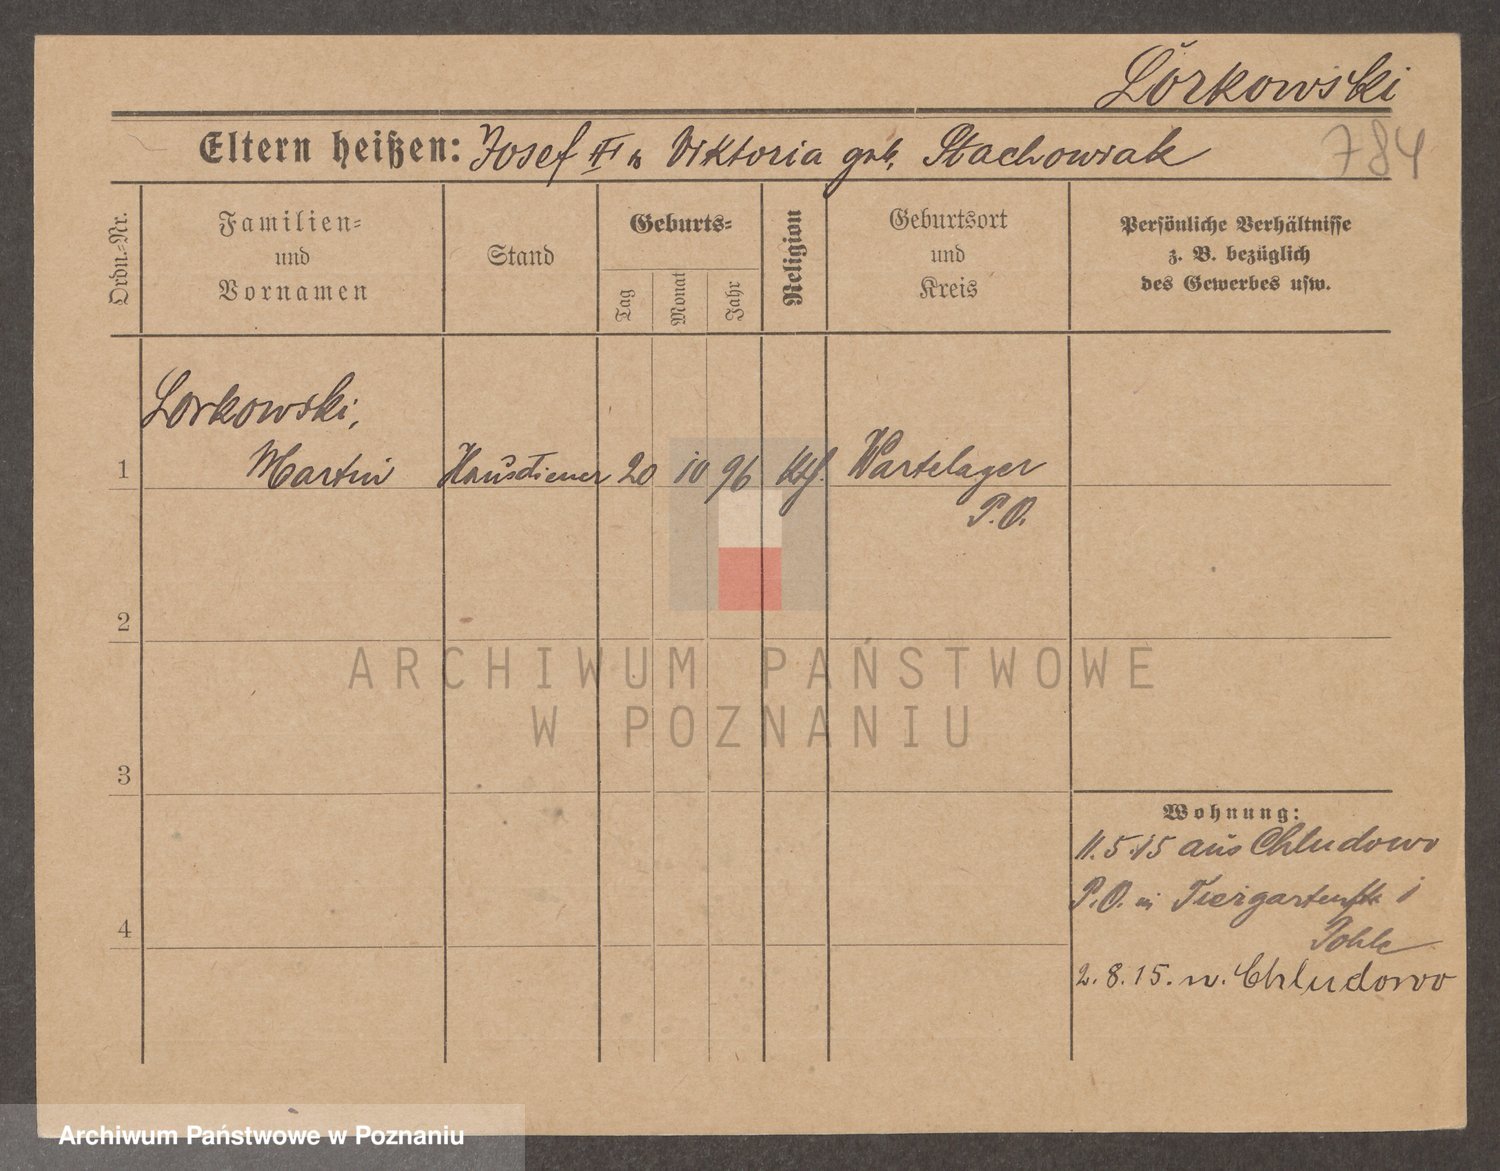 Lorkowski
784
Eltern heißen: Josef Viktoria geb. Stachowiak
Ordn.=Nr.
Familien=
und
Vornamen
Stand
Geburts=
Tag
Monat
Jahr
Religion
Geburtsort
und
Kreis
Persönliche Verhältnisse
z. B. bezüglich
des Gewerbes usw.
Lorkowski,
1 Martin Hausdiener 20 10 96 kth. Wartelager
P.O.
2
3
4
Wohnung:
11.5.15 aus Chludowo
P.O. Tiergartenstr 1
2.8.15. n. Chludowo
ARCHIWUM PAŃSTWOWE
W POZNANIU
Archiwum Państwowe w Poznaniu